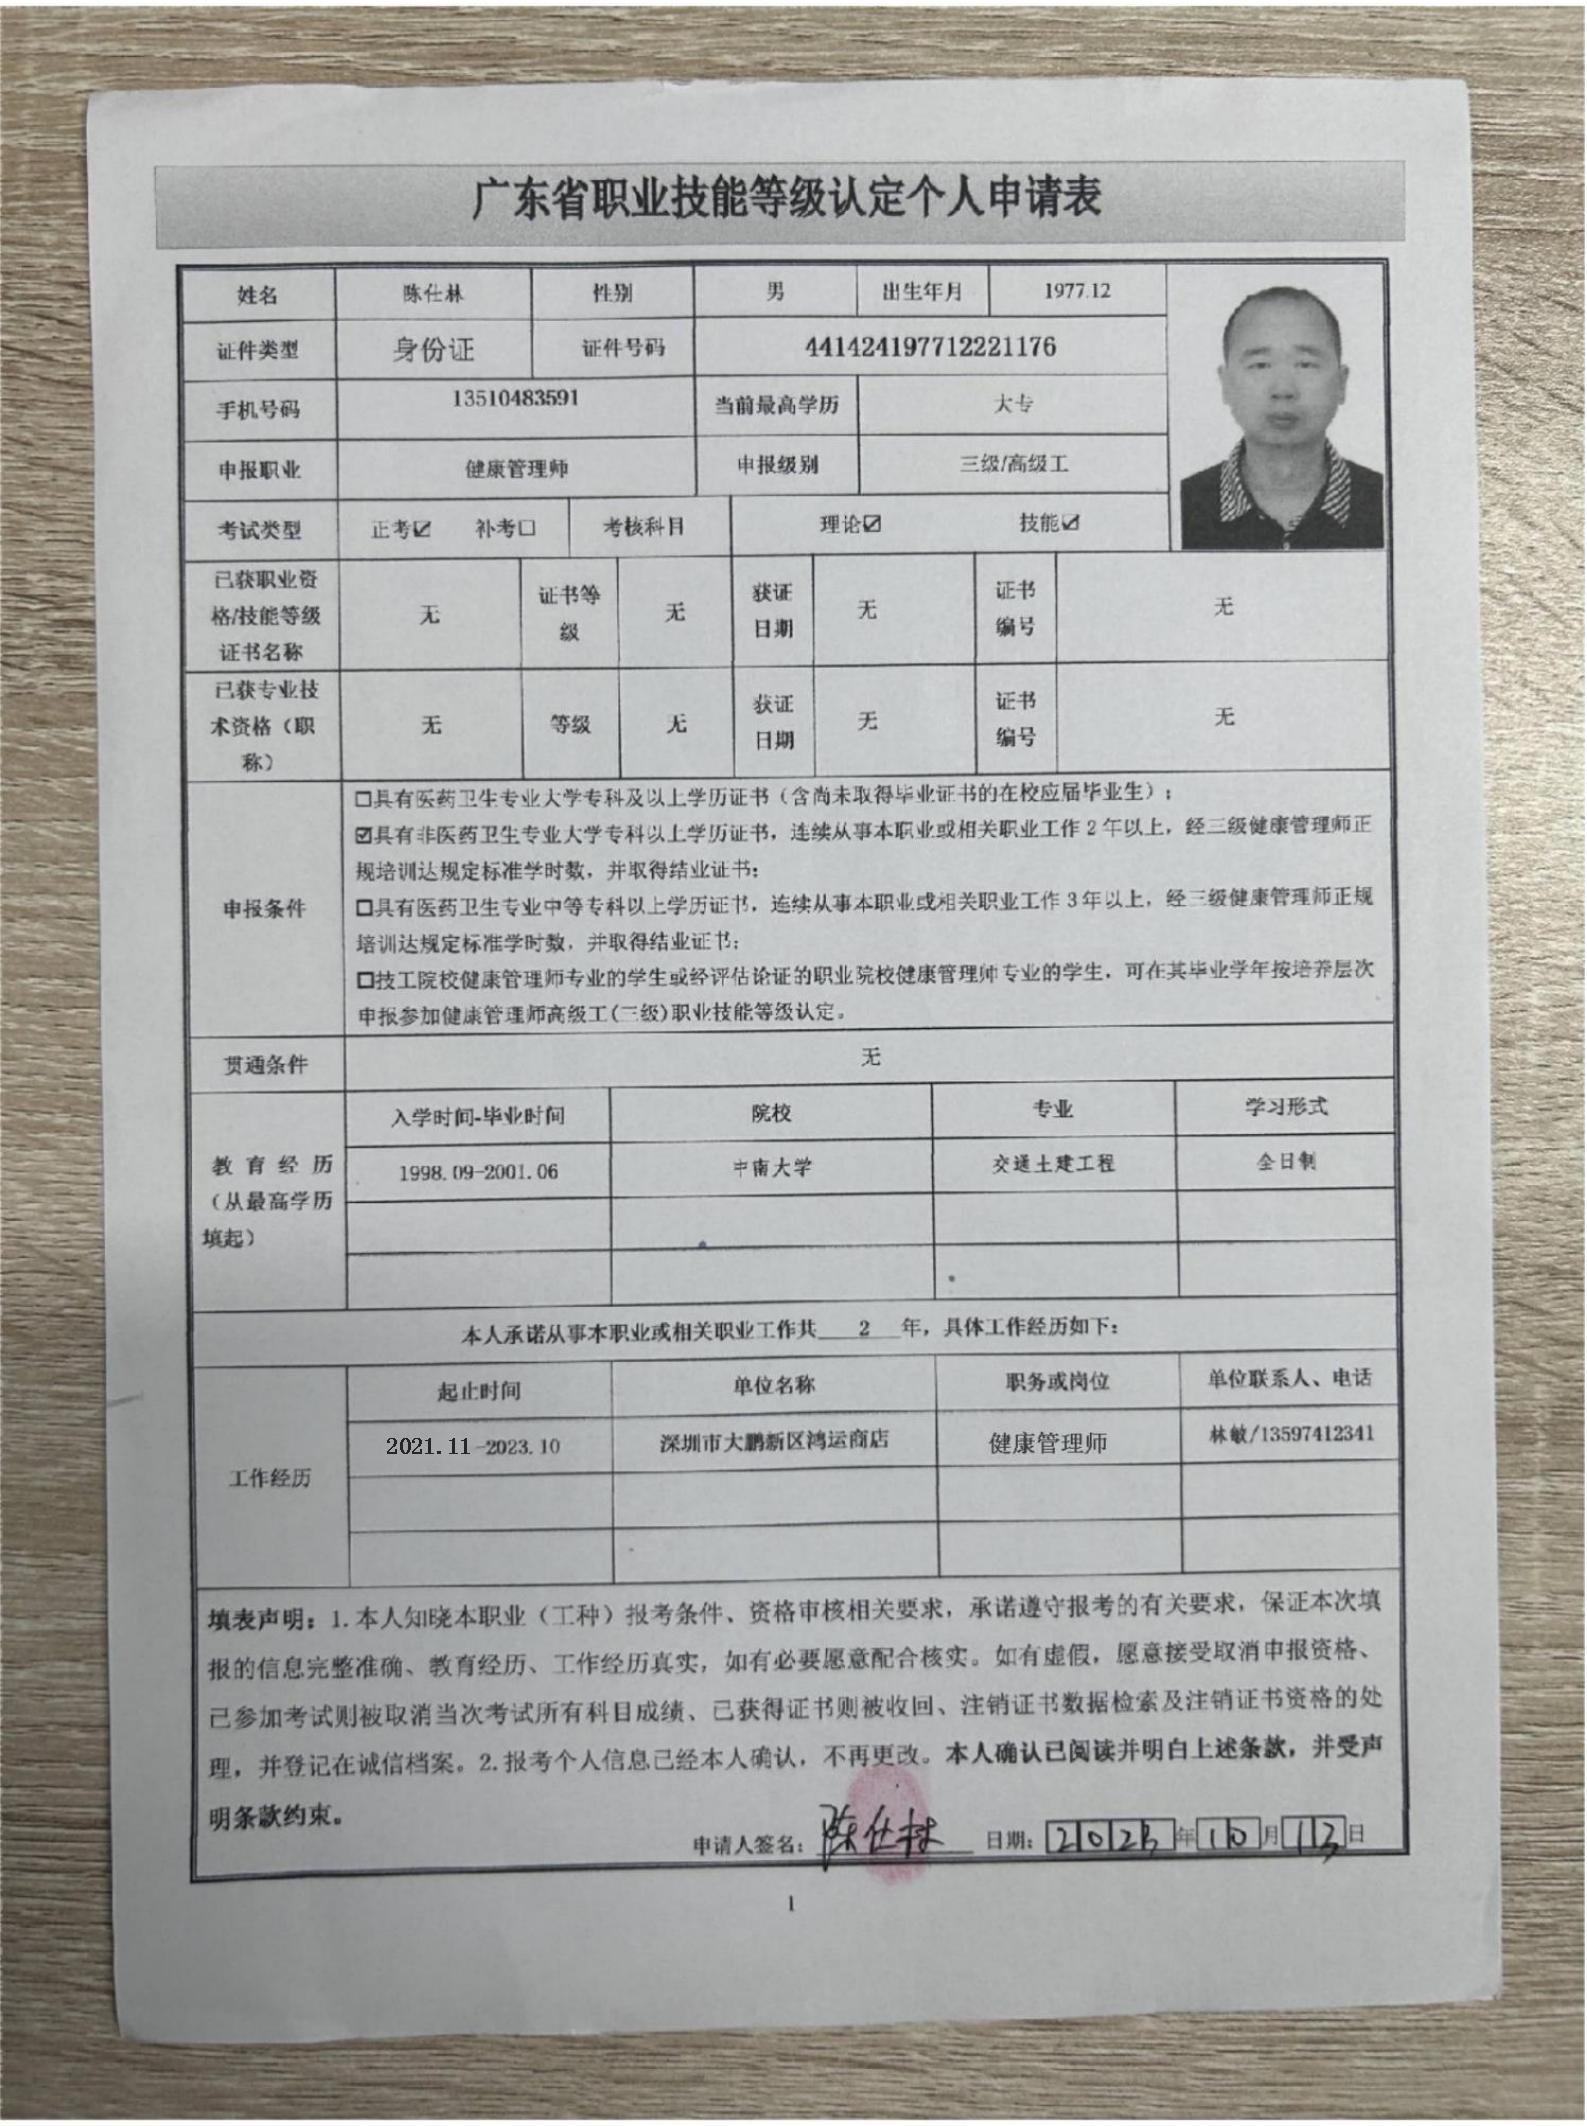 广东省职业技能等级认定个人申请表
姓名 陈仕林 性别 男 出生年月 1977.12
证件类型 身份证 证件号码 441424197712221176
手机号码 13510483591 当前最高学历 大专
申报职业 健康管理师 申报级别 三级/高级工
考试类型 正考☑ 补考☐ 考核科目 理论☑ 技能☑
已获职业资
格/技能等级
证书名称
无
证书等
级
无
获证
日期
无
证书
编号
无
已获专业技
术资格（职
称）
无
等级
无
获证
日期
无
证书
编号
无
申报条件
☐具有医药卫生专业大学专科及以上学历证书（含尚未取得毕业证书的在校应届毕业生）；
☑具有非医药卫生专业大学专科以上学历证书，连续从事本职业或相关职业工作2年以上，经三级健康管理师正
规培训达规定标准学时数，并取得结业证书；
☐具有医药卫生专业中等专科以上学历证书，连续从事本职业或相关职业工作3年以上，经三级健康管理师正规
培训达规定标准学时数，并取得结业证书；
☐技工院校健康管理师专业的学生或经评估论证的职业院校健康管理师专业的学生，可在其毕业学年按培养层次
申报参加健康管理师高级工(三级)职业技能等级认定。
贯通条件 无
教育经历
（从最高学历
填起）
入学时间-毕业时间 院校 专业 学习形式
1998.09-2001.06 中南大学 交通土建工程 全日制
本人承诺从事本职业或相关职业工作共 2 年，具体工作经历如下：
工作经历
起止时间 单位名称 职务或岗位 单位联系人、电话
2021.11-2023.10 深圳市大鹏新区鸿运商店 健康管理师 林敏/13597412341
填表声明：1.本人知晓本职业（工种）报考条件、资格审核相关要求，承诺遵守报考的有关要求，保证本次填
报的信息完整准确、教育经历、工作经历真实，如有必要愿意配合核实。如有虚假，愿意接受取消申报资格、
已参加考试则被取消当次考试所有科目成绩、已获得证书则被收回、注销证书数据检索及注销证书资格的处
理，并登记在诚信档案。2.报考个人信息已经本人确认，不再更改。本人确认已阅读并明白上述条款，并受声
明条款约束。
申请人签名：陈仕林 日期：2023年10月13日
1